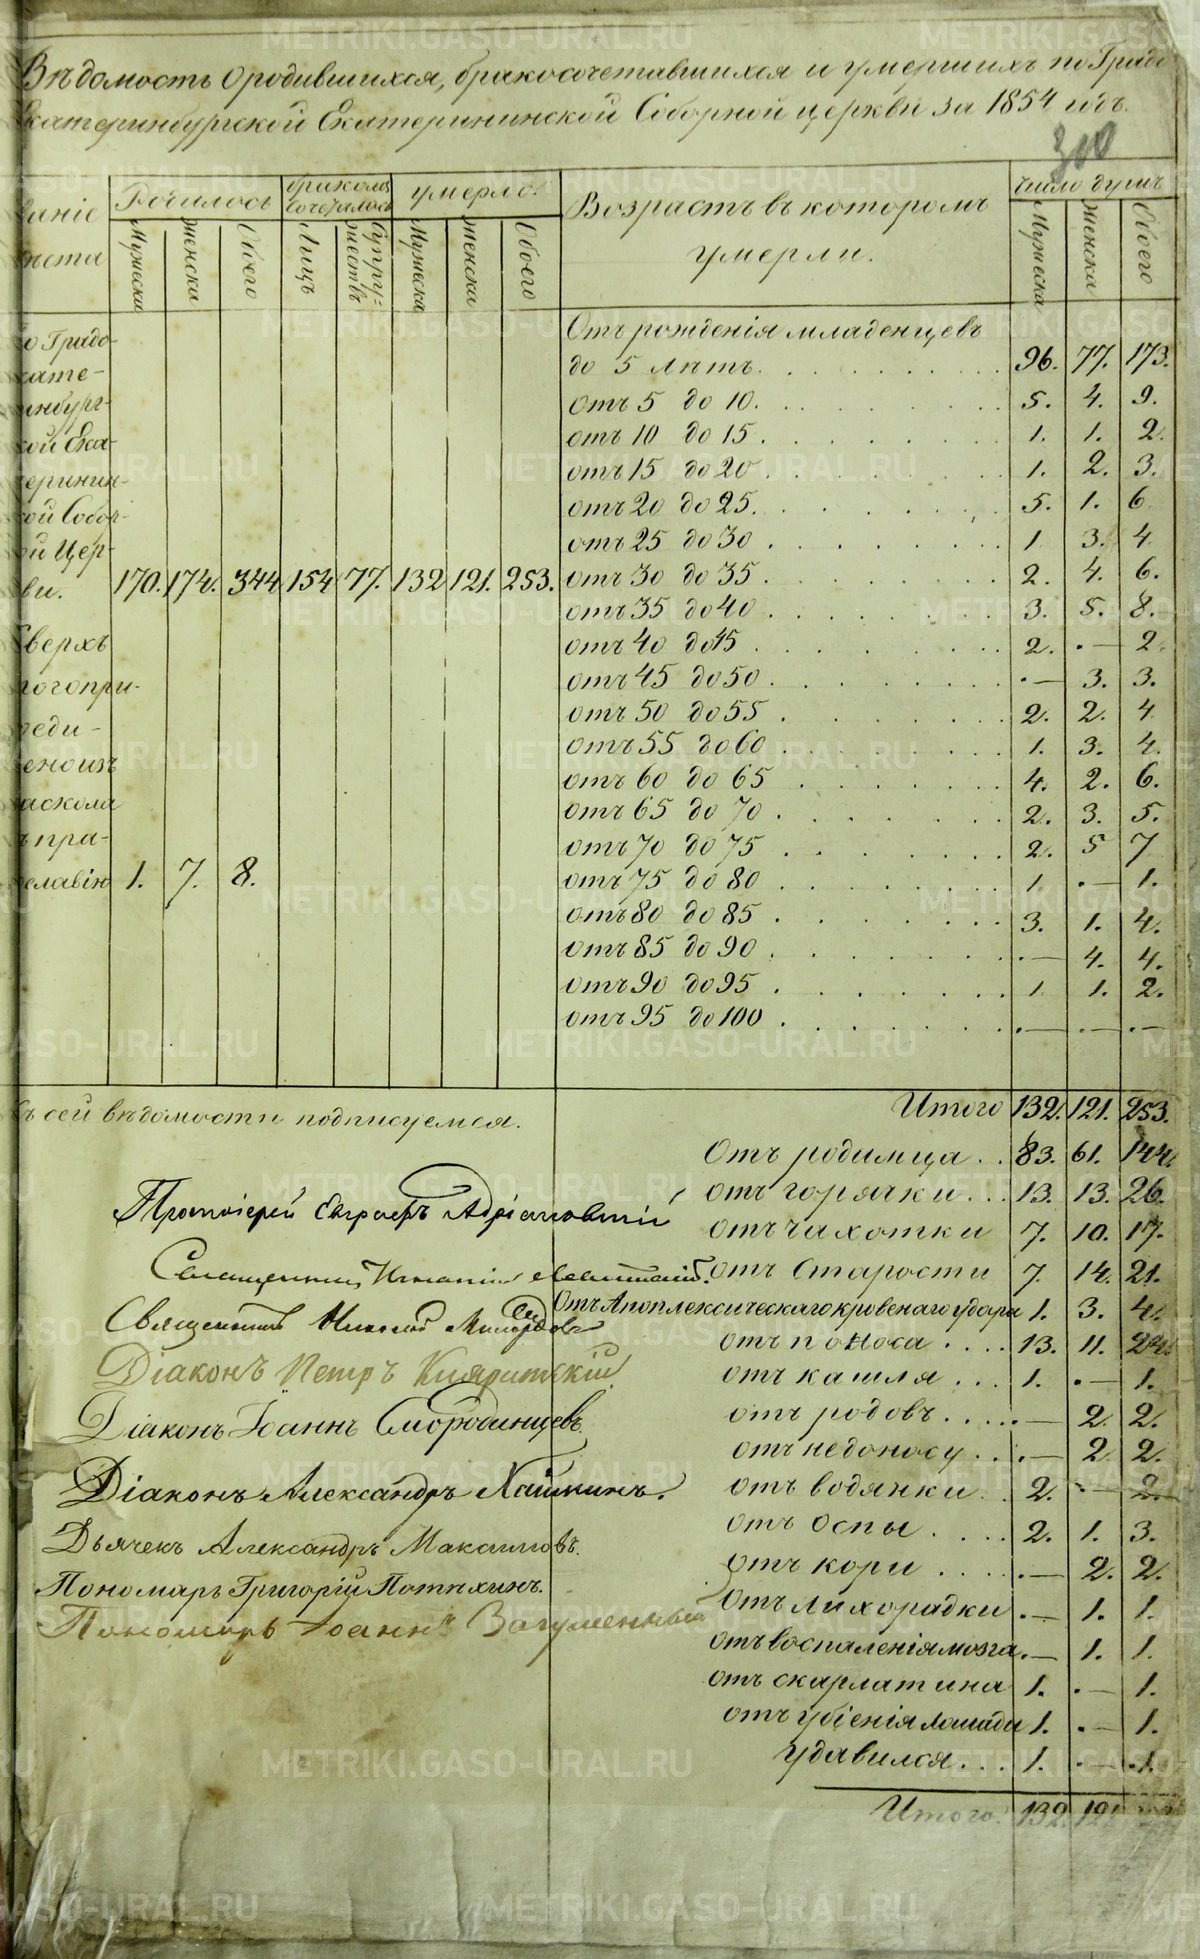 Вѣдомость о родившихся, бракосочетавшихся и умершихъ по Градо
Екатеринбургской Екатерининской Соборной церкви за 1854 годъ.
300
Родилось
бракомъ сочеталось
умерло.
Возрастъ въ которомъ
умерли.
число душъ
Мужеска
Женска
Обоего
Лицъ
Супружествъ
Мужеска
Женска
Обоего
Мужеска
Женска
Обоего
о Градо-
кате-
инбург-
кой Ека-
еринин-
кой Собор-
ой Цер-
ви. 170. 174. 344 154 77. 132 121. 253.
Сверхъ
того при-
еди-
ено изъ
аскола
ъ пра-
славію 1. 7. 8.
Отъ рожденія младенцевъ
до 5 лѣтъ. 96. 77. 173.
отъ 5 до 10. 5. 4. 9.
отъ 10 до 15. 1. 1. 2.
отъ 15 до 20. 1. 2. 3.
отъ 20 до 25. 5. 1. 6
отъ 25 до 30. 1 3. 4
отъ 30 до 35. 2. 4. 6.
отъ 35 до 40. 3. 5. 8.
отъ 40 до 45. 2. — 2.
отъ 45 до 50. — 3. 3.
отъ 50 до 55. 2. 2. 4
отъ 55 до 60. 1. 3. 4.
отъ 60 до 65. 4. 2. 6.
отъ 65 до 70. 2. 3. 5.
отъ 70 до 75. 2. 5 7
отъ 75 до 80. 1 — 1.
отъ 80 до 85. 3. 1. 4.
отъ 85 до 90. — 4. 4.
отъ 90 до 95. 1 1. 2.
отъ 95 до 100. — — —
Итого 132. 121. 253.
ъ сей вѣдомости подписуемся.
Отъ родимца 83. 61. 144.
отъ горячки 13. 13. 26.
отъ чахотки 7. 10. 17.
отъ старости 7. 14. 21.
Отъ Апоплексическаго кровенаго удара 1. 3. 4.
отъ поноса 13. 11. 24.
отъ кашля 1. — 1.
отъ родовъ — 2. 2.
отъ недоносу — 2 2.
отъ водянки 2. — 2.
отъ Оспы 2. 1. 3.
отъ кори — 2. 2.
отъ лихорадки — 1. 1.
отъ воспаленія мозга — 1. 1.
отъ скарлатина 1. — 1.
отъ убіенія лошади 1. — 1.
удавился 1. — 1.
Итого. 132. 121
Протоіерей Евграфъ Адріановскій
Священникъ
Священникъ Николай
Діаконъ Петръ
Діаконъ Іоаннъ Смородинцевъ.
Діаконъ Александръ
Дьячекъ Александръ Максимовъ.
Пономарь Григорій Потѣхинъ.
Пономарь Іоаннъ Загуменный
METRIKI.GASO-URAL.RU